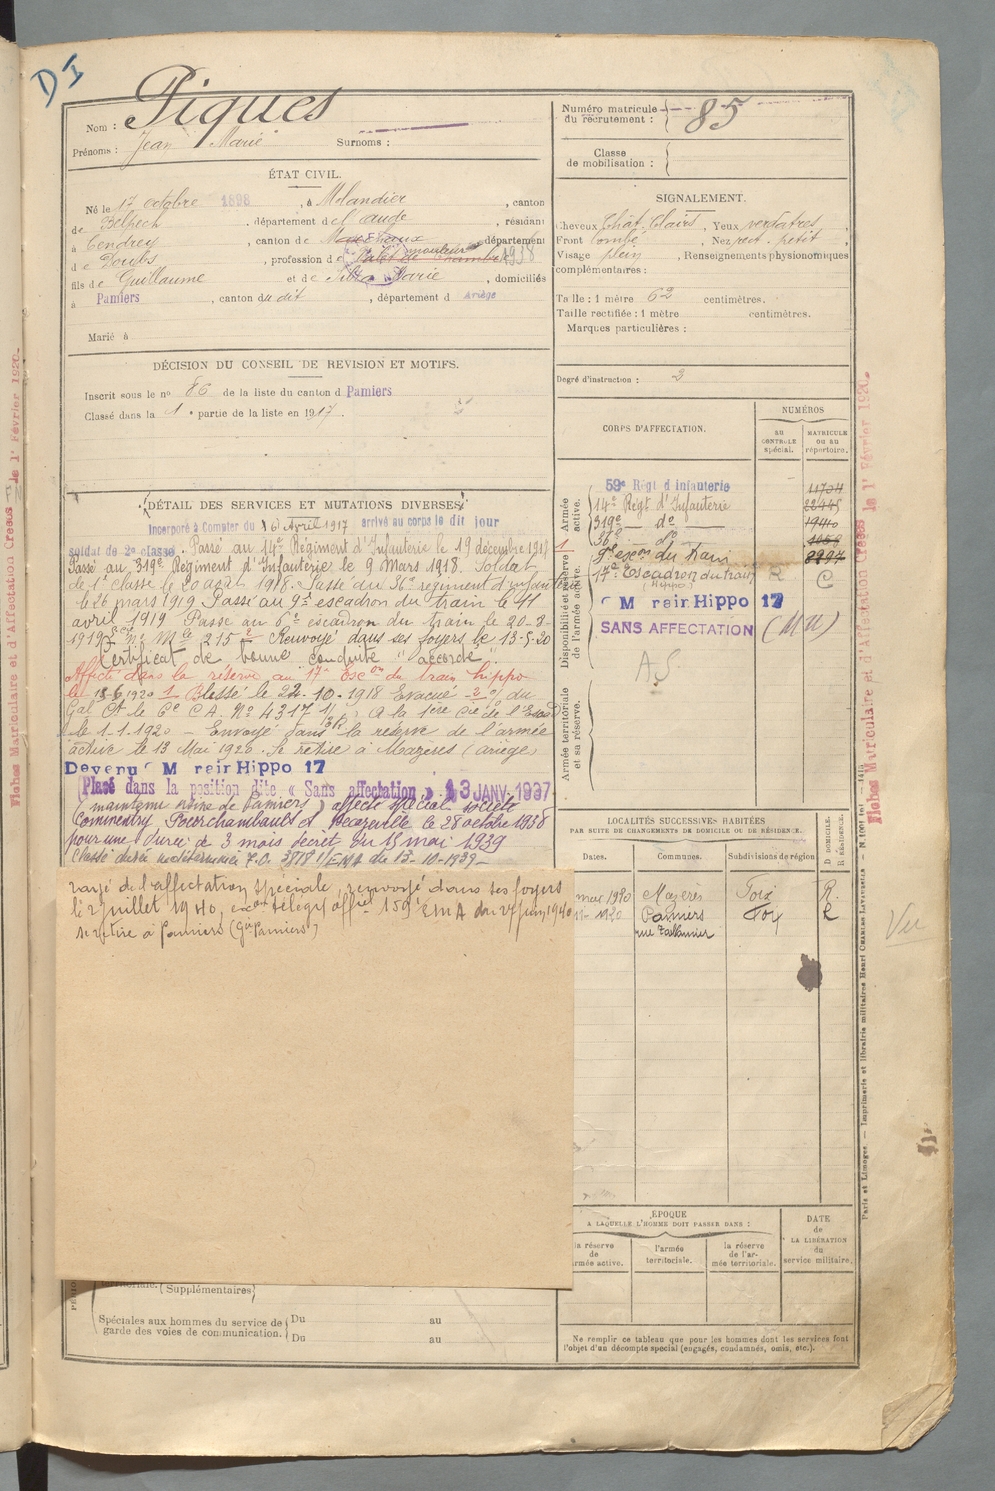 DI
Nom : Piques
Prénoms : Jean Marie Surnoms :
Numéro matricule du recrutement : 85
Classe de mobilisation :
ÉTAT CIVIL.
Né le 17 octobre 1898, à Molandier, canton
de Belpech, département de l'aude, résidant
à Cendrey, canton de Marchaux, département
d de Doubs, profession de mouleur Valet de Chambre 1938
fils de Guillaume et de Marie, domiciliés
à Pamiers, canton du dit, département d Ariège
Marié à
SIGNALEMENT.
Cheveux Chât. Clairs, Yeux verdâtres
Front bombé, Nez rect. petit
Visage plein, Renseignements physionomiques
complémentaires :
Taille : 1 mètre 62 centimètres.
Taille rectifiée : 1 mètre centimètres.
Marques particulières :
Degré d'instruction : 3
DÉCISION DU CONSEIL DE REVISION ET MOTIFS.
Inscrit sous le n° 86 de la liste du canton d Pamiers
Classé dans la 1e partie de la liste en 1917.
CORPS D'AFFECTATION.
NUMÉROS
AU CONTROLE spécial.
MATRICULE ou au répertoire.
Armée active.
59e Régt d'Infanterie 11704
14e Régt d'Infanterie 22445
319e do 1940
36e do 1059
Disponibilité et réserve de l'armée active.
9e escon du train 2297
17e Escadron du train R C
(hippo)
C M reir Hippo 17
SANS AFFECTATION (MM)
AS
Armée territoriale et sa réserve.
DÉTAIL DES SERVICES ET MUTATIONS DIVERSES
Incorporé à Compter du 16 Avril 1917 arrivé au corps le dit jour
soldat de 2e classe. Passé au 14e Régiment d'Infanterie le 19 décembre 1917
Passé au 319e Régiment d'Infanterie le 9 Mars 1918. Soldat
de 1e classe le 20 août 1918. Passé au 36e régiment d'infanterie
le 26 mars 1919 Passé au 9e escadron du train le 11
avril 1919 Passé au 6e escadron du train le 20-8-
1919 No Mle 215 Renvoyé dans ses foyers le 13-5-20
Certificat de bonne conduite "accordé".
Affecté dans la réserve au 17e Escon du train hippo
le 13 6 1920 1 Blessé le 22-10-1918 Evacué 2 o/ du
Gal Ct le 6e CA. No 4317 1/3R, a la 1ère Cie de l'Escad
le 1-1-1920 - Envoyé dans la réserve de l'armée
active le 13 Mai 1920. Se retire à Mazères (ariège)
Devenu C M reir Hippo 17
Placé dans la position dite « Sans affectation » 13 JANV. 1937
(maintenu usine de Pamiers) affecté spécial société
Commentry Fourchambault et Decazeville le 28 octobre 1938
pour une durée de 3 mois décret du 15 mai 1939
Classé durée indéterminée F.C. 3818 1/EMA du 13-10-1939-
rayé de l'affectation spéciale, renvoyé dans ses foyers
le 2 juillet 1940, exon télégr. officiel 159 EMA du 27 juin 1940
se retire à Pamiers (Gie Pamiers)
LOCALITÉS SUCCESSIVES HABITÉES
PAR SUITE DE CHANGEMENTS DE DOMICILE OU DE RÉSIDENCE.
Dates. Communes. Subdivisions de région. D DOMICILE. R RÉSIDENCE.
mai 1920 Mazères Foix R.
11-1920 Pamiers Foix R
ÉPOQUE
A LAQUELLE L'HOMME DOIT PASSER DANS :
la réserve de l'armée active.
l'armée territoriale.
la réserve de l'armée territoriale.
DATE de LA LIBÉRATION du service militaire.
territoriale. (Supplémentaires)
Spéciales aux hommes du service de garde des voies de communication.
Du au
Du au
Ne remplir ce tableau que pour les hommes dont les services font
l'objet d'un décompte spécial (engagés, condamnés, omis, etc.).
Paris et Limoges. — Imprimerie et librairie militaires Henri CHARLES-LAVAUZELLE
Fiches Matriculaire et d'Affectation Créées le 1r Février 1920.
Fiches Matriculaire et d'Affectation Créées le 1r Février 1920.
Vu